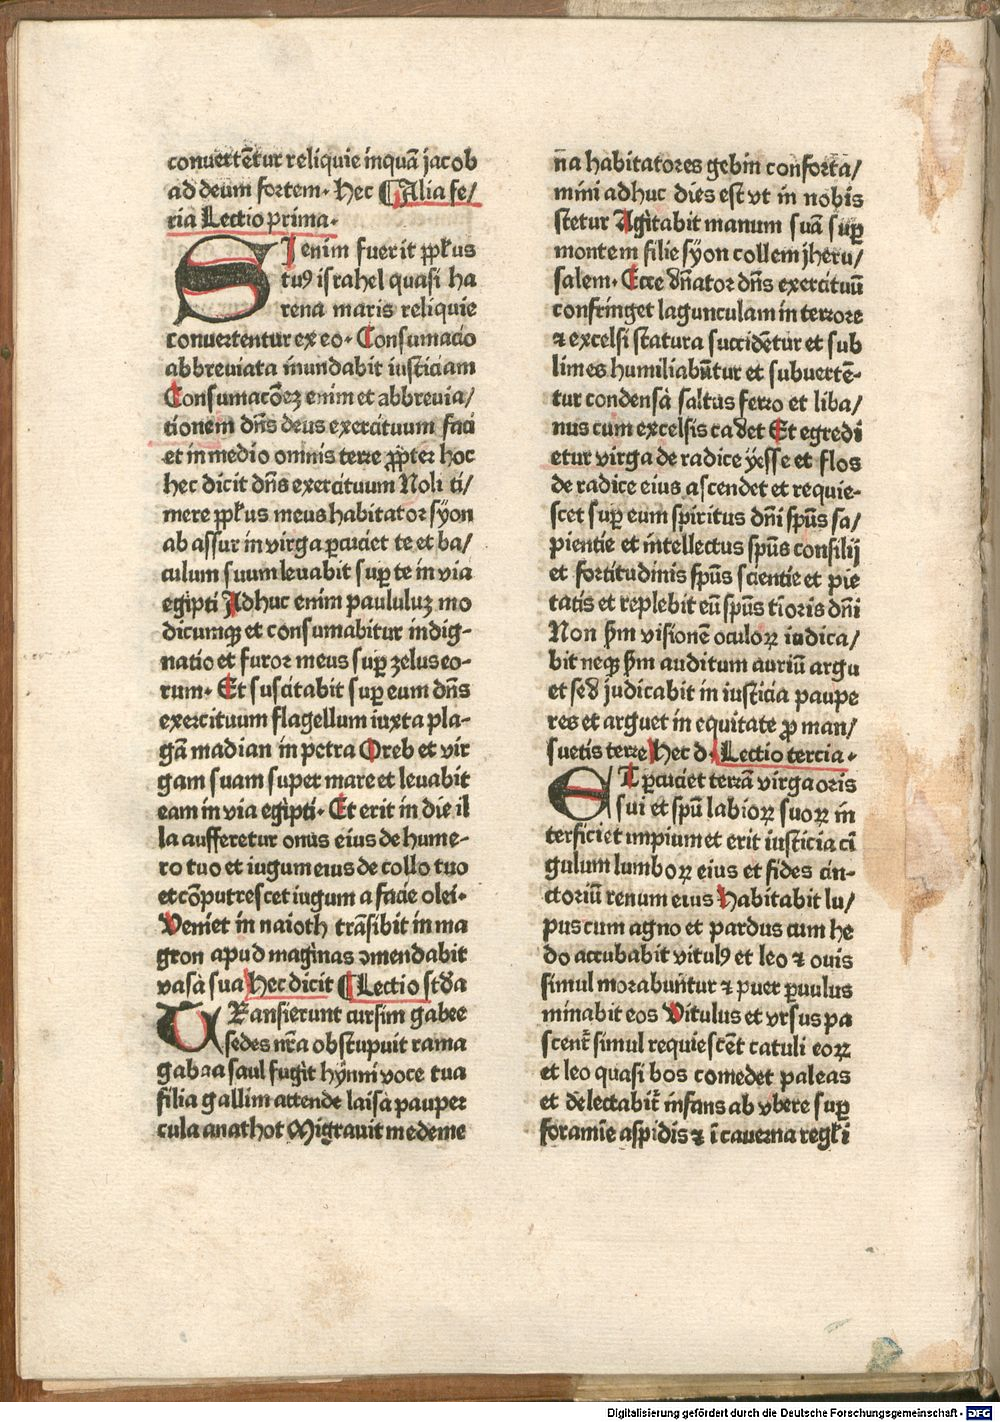 conuertētur reliquie inquā jacob
ad deum fortem. Hec ¶ Alia fe/
ria Lectio prima.
SI enim fuerit pplʼus
tuꝰ israhel quasi ha
rena maris reliquie
conuertentur ex eo. Consumacio
abbreuiata inundabit iusticiam
Consumacōeꝫ enim et abbreuia/
tionem dn̄s deus exercituum faci
et in medio omnis terre ꝓpter hoc
hec dicit dn̄s exercituum Noli ti/
mere pplʼus meus habitator syon
ab assur in virga ꝑcuciet te et ba/
culum suum leuabit suꝑ te in via
egipti Adhuc enim paululuꝫ mo
dicumqꝫ et consumabitur indig-
natio et furor meus suꝑ zelus eo-
rum. Et suscitabit suꝑ eum dn̄s
exercituum flagellum iuxta pla-
gā madian in petra Oreb et vir
gam suam super mare et leuabit
eam in via egipti. Et erit in die il
la aufferetur onus eius de hume-
ro tuo et iugum eius de collo tuo
et cōputrescet iugum a facie olei.
Veniet in naioth trāsibit in ma
gron apud maginas ↄmendabit
vasa sua Hec dicit ¶ Lectio scd̄a
TRansierunt cursim gabee
sedes nr̄a obstupuit rama
gabaa saul fugit hynni voce tua
filia gallim attende laisa pauper
cula anathot Migrauit medeme
na habitatores gebin conforta/
mini adhuc dies est vt in nobis
stetur Agitabit manum suā suꝑ
montem filie syon collem jheru/
salem. Ecce dn̄ator dn̄s exercituū
confringet lagunculam in terrore
⁊ excelsi statura succidētur et sub
limes humiliabūtur et subuertē-
tur condensa saltus ferro et liba/
nus cum excelsis cadet Et egredi
etur virga de radice yesse et flos
de radice eius ascendet et requie-
scet suꝑ eum spiritus dn̄i spūs sa/
pientie et intellectus spūs consilij
et fortitudinis spūs scientie et pie
tatis et replebit eū spūs tīoris dn̄i
Non scḋm visionē oculoꝝ iudica/
bit neqꝫ scḋm auditum auriū argu
et sed judicabit in iusticia paupe
res et arguet in equitate ꝓ man/
suetis terre Hec d. Lectio tercia.
ET ꝑcuciet terrā virga oris
sui et spū labioꝝ suoꝝ in
terficiet impium et erit iusticia ci
gulum lumboꝝ eius et fides cin-
ctoriū renum eius Habitabit lu/
pus cum agno et pardus cum he
do accubabit vitulꝰ et leo ⁊ ouis
simul morabūtur ⁊ puer ꝑuulus
minabit eos Vitulus et vrsus pa
scent̄ simul requiescēt catuli eoꝝ
et leo quasi bos comedet paleas
et delectabit̄ infans ab vbere suꝑ
foramīe aspidis ⁊ ī cauerna reglʼi
Digitalisierung gefördert durch die Deutsche Forschungsgemeinschaft - DFG